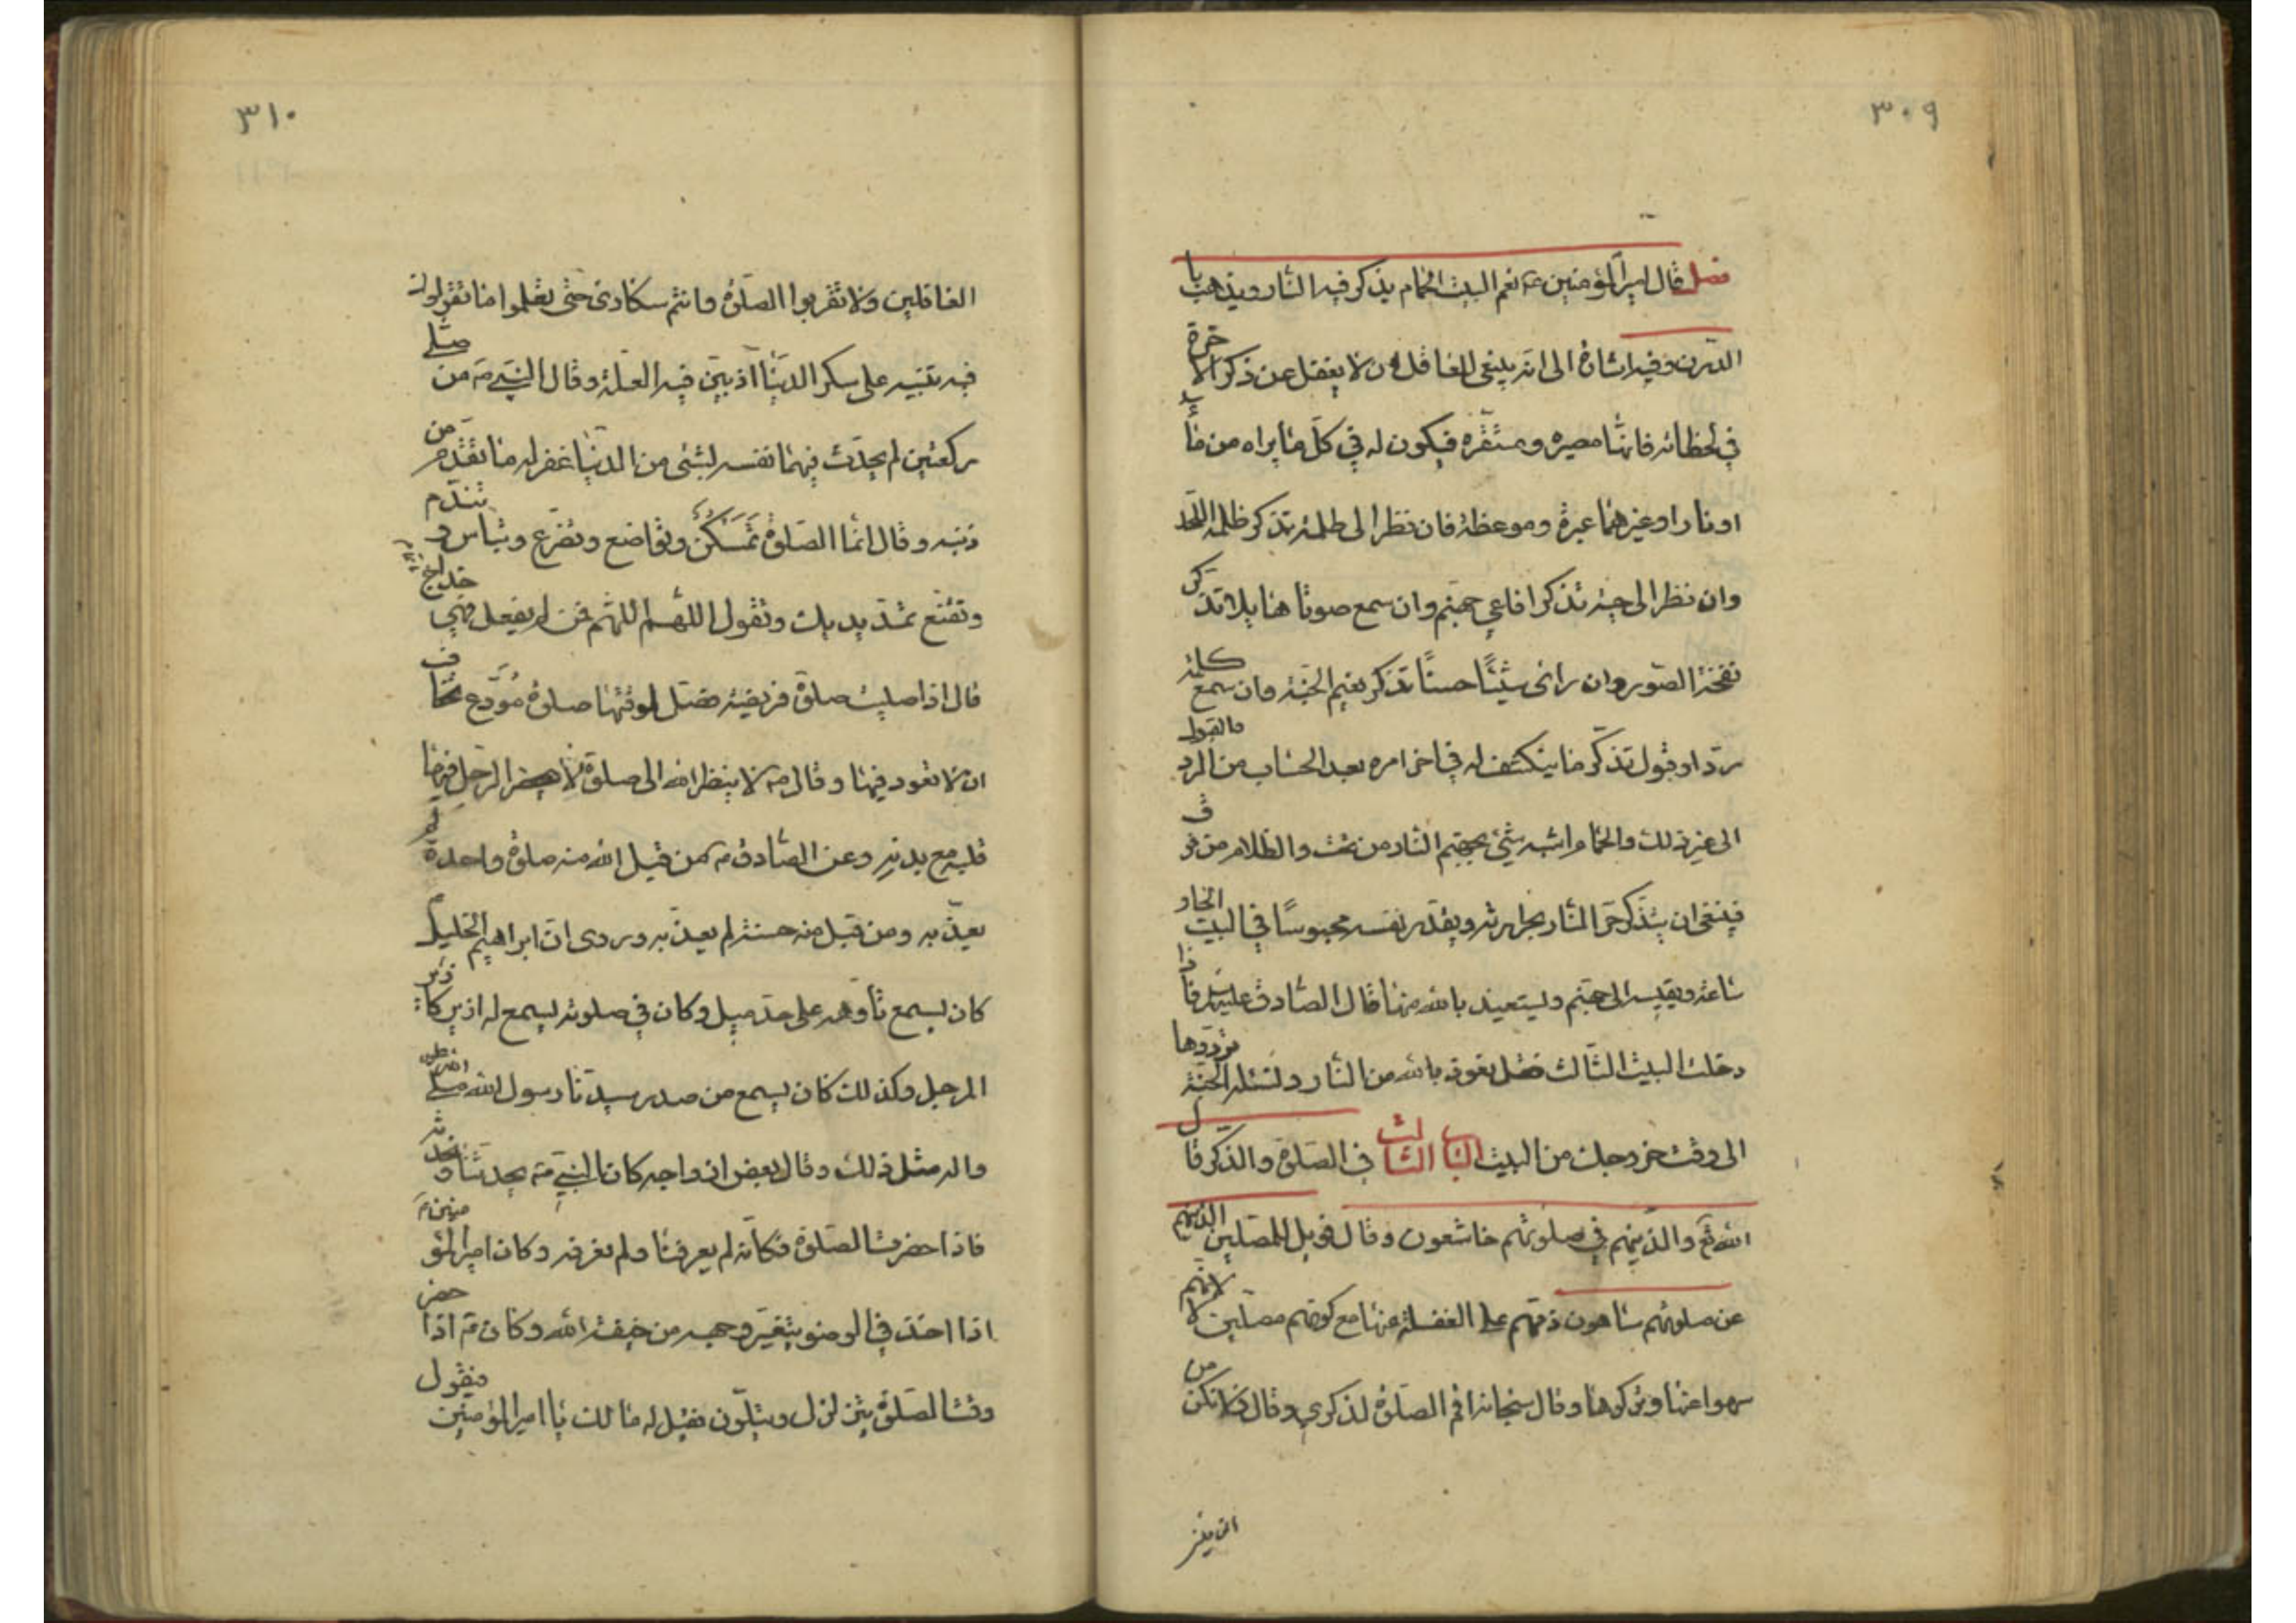 ٣٠٩
فصل قال امير المؤمنين ع نعم البيت الحمام يذكر فيه النار ويذهب با
الدرن وفيه اشارة الى انه ينبغى للعاقل ان لا يغفل عن ذكر الاخرة
في لحظاته فانها مصيره ومستقره فيكون له في كل ما يراه من ماء
او نار او غيرهما عبرة وموعظة فان نظر الى ظلمة تذكر ظلمة اللحد
وان نظر الى حية تذكر افاعي جهنم وان سمع صوتا هايلا تذكر
نفخة الصور وان راى شيئًا حسنًا تذكر نعيم الجنة وان سمع كلمة
رد او قبول تذكر ما ينكشف له في اخر امره بعد الحساب من الرد والقبول
الى غير ذلك والحمام اشبه شئ بجهنم النار من تحت والظلام من فوق
فينبغى ان يتذكر حر النار بحرارته ويقدر نفسه محبوسًا في البيت الحار
ساعة ويقيسه الى جهنم ويستعيذ بالله منها قال الصادق عليه السلم فاذا
دخلت البيت الثالث فقل نعوذ بالله من النار ونسئله الجنة تردّدها
الى وقت خروجك من البيت الباب الثالث في الصلوة والذكر قال
الله تع والذينهم في صلوتهم خاشعون وقال فويل للمصلين الذينهم
عن صلوتهم ساهون ذمهم على الغفلة عنها مع كونهم مصلين لا لانهم
سهوا عنها وتركوها وقال سبحانه اقم الصلوة لذكري وقال ولا تكن من
الغافلين
٣١٠
الغافلين ولا تقربوا الصلوة وانتم سكارى حتى تعلموا ما تقولون
فيه تنبيه على سكر الدنيا اذ بين فيه العلة وقال النبي ص من صلى
ركعتين لم يحدث فيهما نفسه لشئ من الدنيا غفر له ما تقدم من
ذنبه وقال انما الصلوة تَمَسْكُنٌ وتواضع وتضرع وتبأس وتندم
وتقنع تمد يديك وتقول اللهم اللهم فمن لم يفعل فهي خداج
قال اذا صليت صلوة فريضة فصل لوقتها صلوة مُوَدِّع تخاف
ان لا تعود فيها وقال ص لا ينظر الله الى صلوة لا يحضر الرجل فيها
قلبه مع بدنه وعن الصادق ع من قبل الله منه صلوة واحدة لم
يعذبه ومن قبل منه حسنة لم يعذبه وروى ان ابراهيم الخليل ع
كان يسمع تأوهه على حد ميل وكان في صلوته يسمع له ازيز كازيز
المرجل وكذلك كان يسمع من صدر سيدنا رسول الله صلى الله عليه
واله مثل ذلك وقال بعض ازواجه كان النبي ص يحدثنا ونحدثه
فاذا حضرت الصلوة فكانه لم يعرفنا ولم نعرفه وكان امير المؤمنين ع
اذا اخذ في الوضوء يتغير وجهه من خيفة الله وكان ع اذا حضر
وقت الصلوة يتزلزل ويتلون فقيل له مالك يا امير المؤمنين فيقول